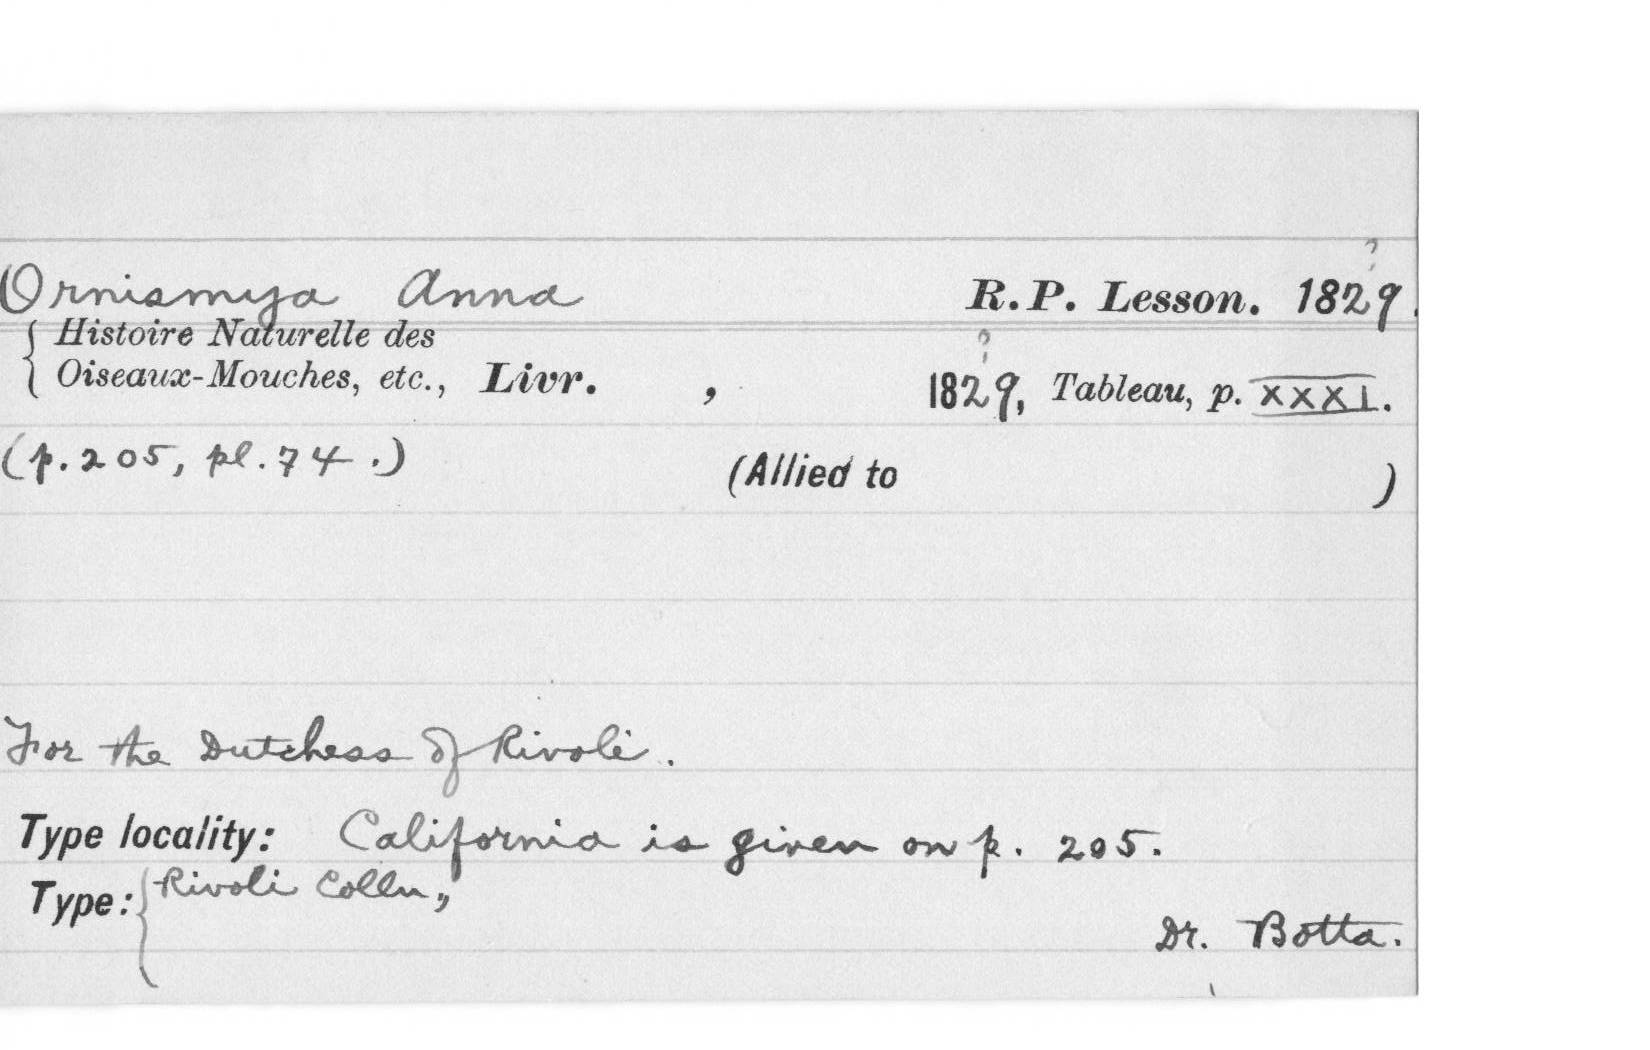 ?
Ornismya Anna R.P. Lesson. 1829.
Histoire Naturelle des
?
Oiseaux-Mouches, etc., Livr. , 1829, Tableau, p. XXXI.
(p. 205, pl. 74.) (Allied to )
For the Dutchess of Rivoli.
Type locality: California is given on p. 205.
Type: Rivoli Colln.,
Dr. Botta.